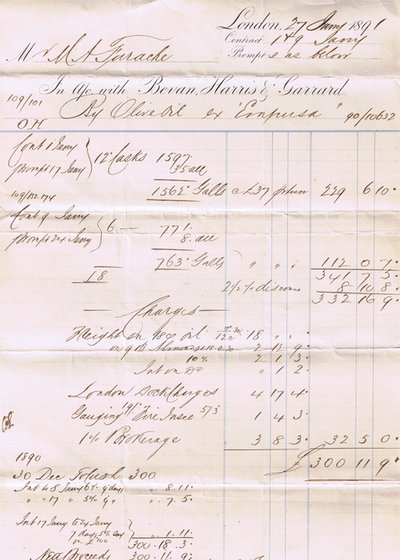 London, 27 Jany 1891
Contract 1 & 9 Jany
Prompt s as below
Mr M A Farache
In A/c with Bevan, Harris & Garrard.
109/101 By Olive Oil ex "Empusa" 90/10632
O H
Cont 1 Jany
prompt 17 Jany 12 Casks 1597
35 all
1562 Galls £37 p tun 229 6 10
Cont 9 Jany
prompt 24 Jany 6 — 771
8 all
763 Galls " " " 112 0 7
18 341 7 5
2½% discou 8 10 8
332 16 9
— Charges —
on oil 18 " "
2 18 9
10% 2 1 3
Int on Do " 1 2
London Dock Charges 4 17 4
Gauging Fire Insce 5/3 1 4 3
1% Brokerage 3 8 3 32 5 0
£ 300 11 9
1890
30 Dec 300
Int to 8 Jany 9 days " 8.11
" " 17 " 5% 9 " " 7.5
Int 17 Jany to 24 Jany
7 days 5% " 1.11
300.18.3
Nett Proceeds 300.11.9